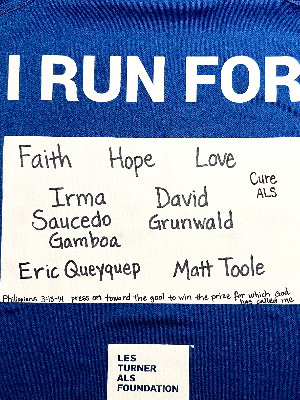 I RUN FOR
Faith Hope Love
Cure
ALS
Irma David
Saucedo Grunwald
Gamboa
Eric Queyquep Matt Toole
Philippians 3:13-14 press on toward the goal to win the prize for which God
has called me
LES
TURNER
ALS
FOUNDATION